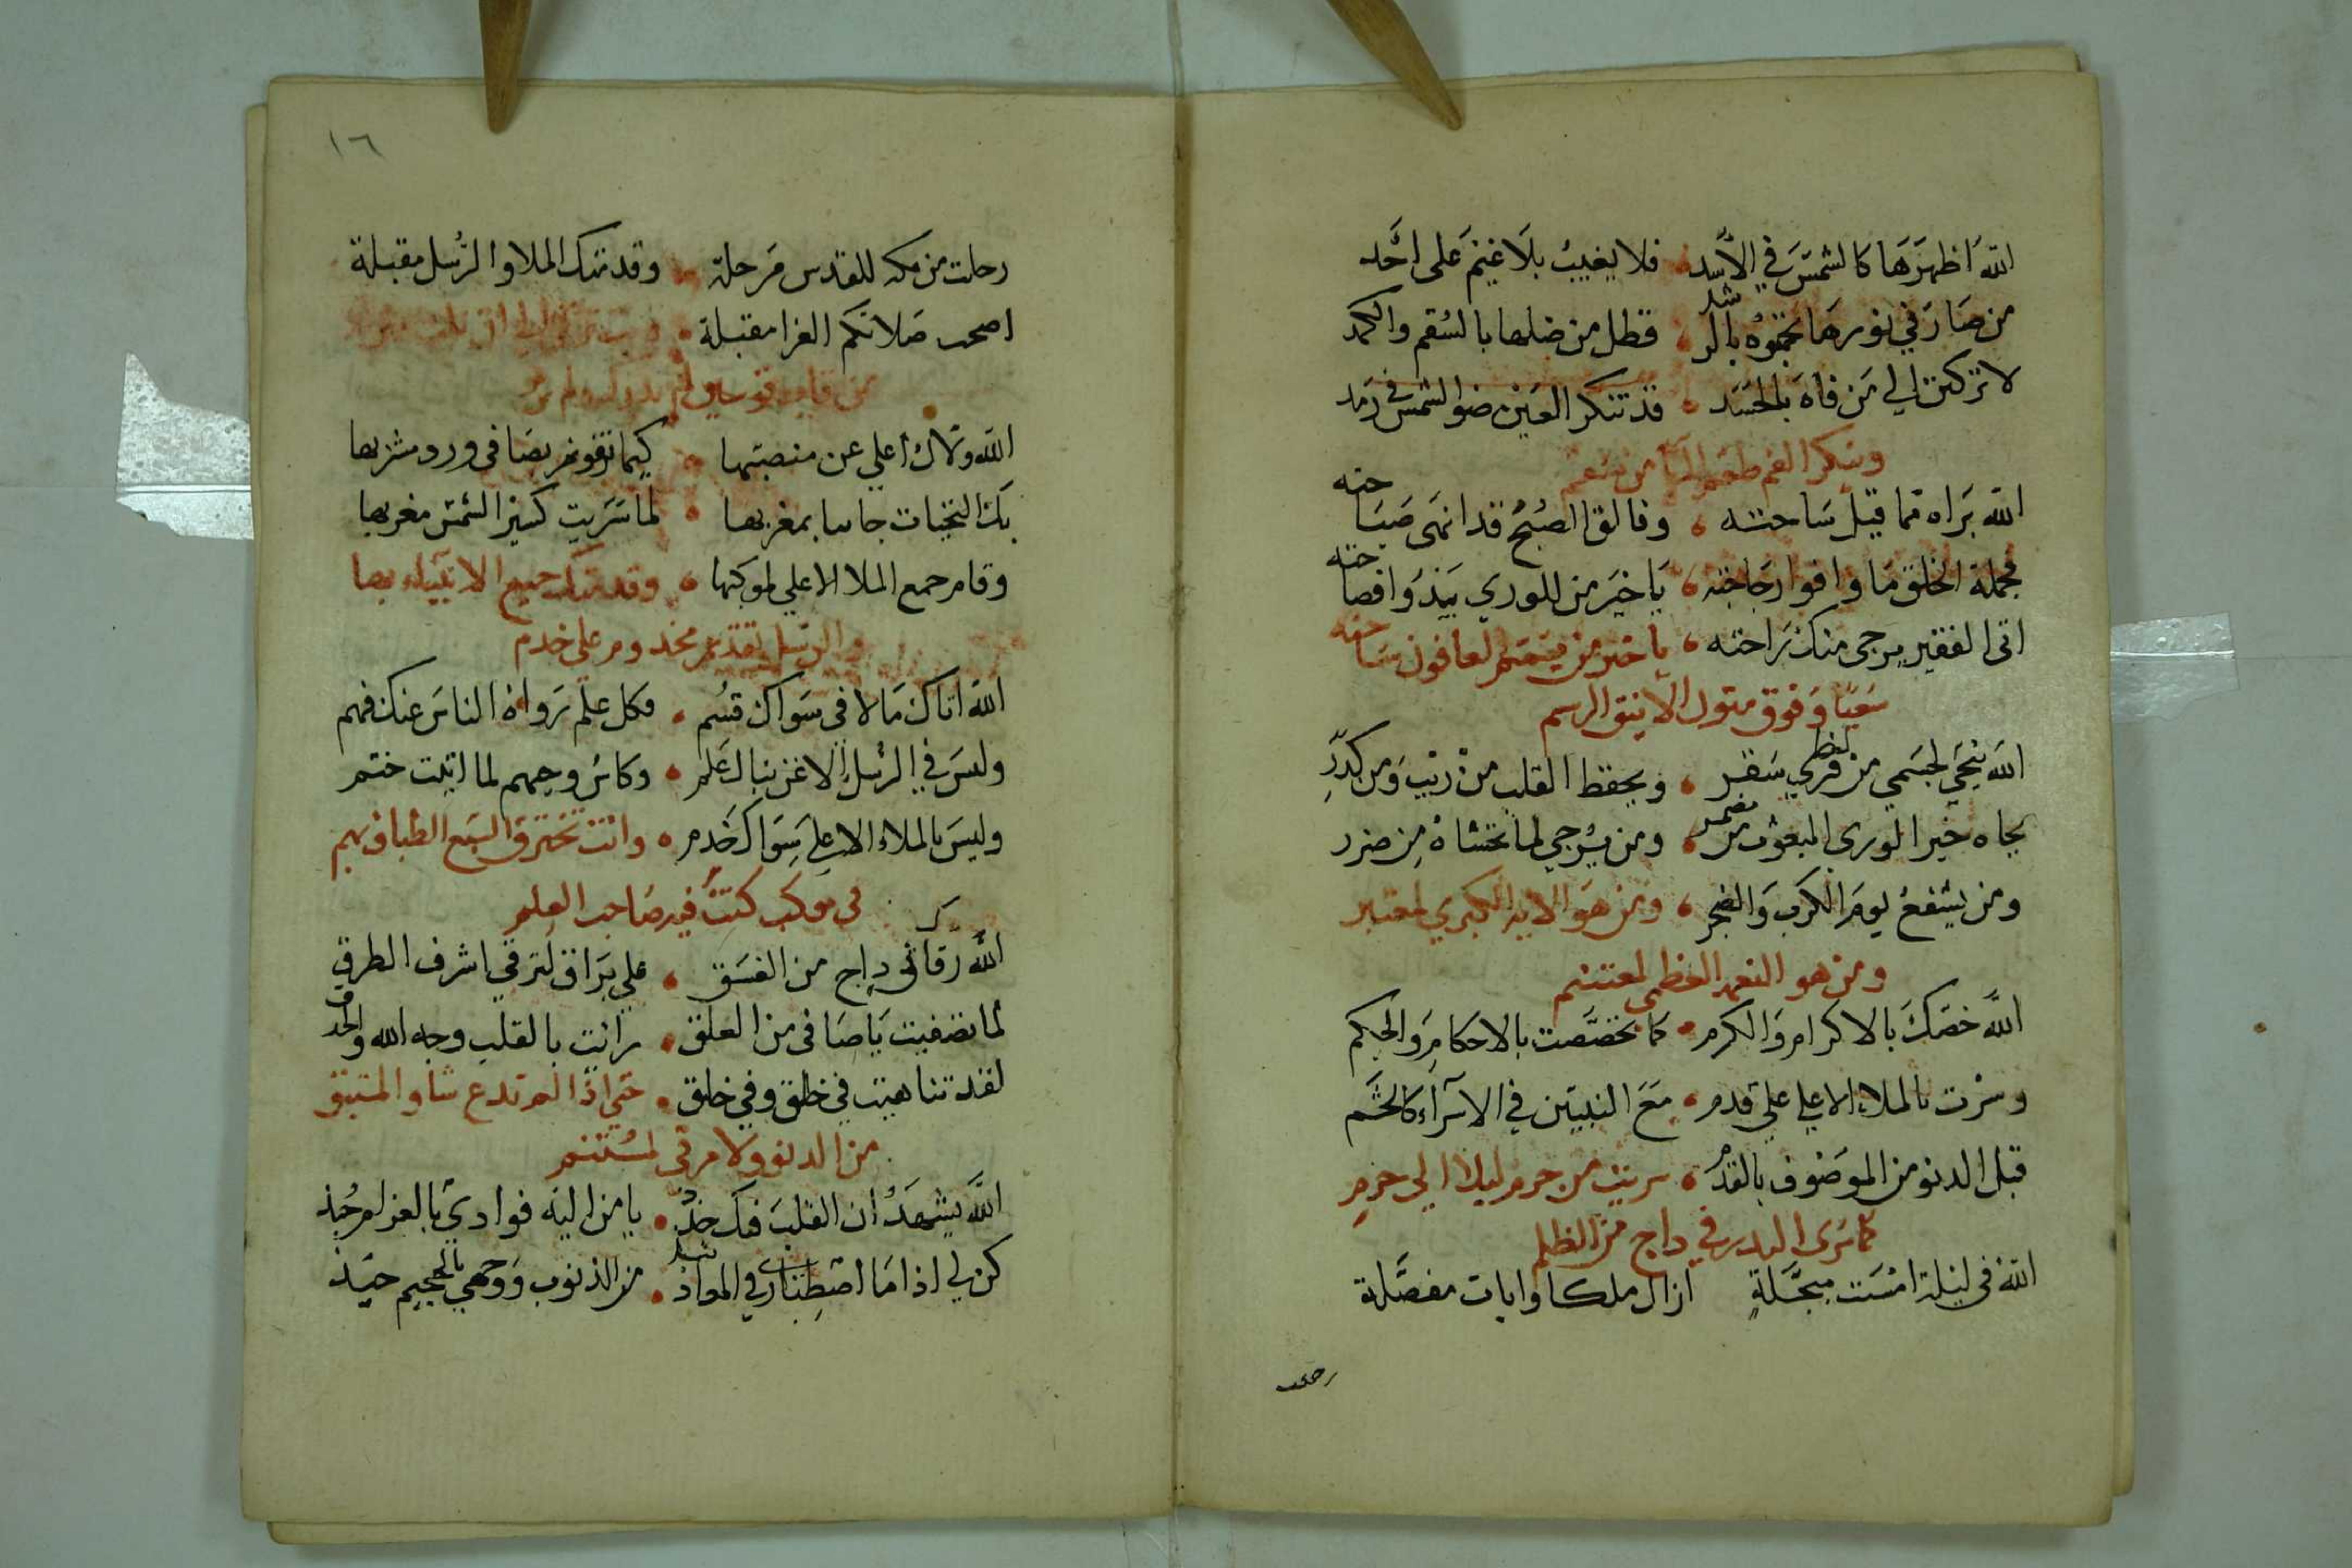 الله اظهرها كالشمس في الأسد فلا يغيب بلا غيم على احد
من صار في نورها نحوه بالرشد قطل من ضلها بالسقم والكمد
لا تركنن الي من فاه بالحسد قد تنكر العين ضوا لشمس في رمد
وينكر الفم طعم الما من سقم
الله براه قما قيل ساحته وفالق الصبح قد انهى صباحته
بجملة الخلق ما وافوا رجاحته يا خير من للوري يبدوا فصاحته
اتى الفقير يرجى منك راحته يا خير من يمم العافون ساحته
سعيا وفوق متون الاينق الرسم
الله ينجي لجسمي من قري لظي سقر ويحفظ القلب من ريب ومن كدر
بجاه خير الوري المبعوث من مضر ومن يرجي لما نخشاه من ضرر
ومن يشفع يوم الكرب والضجر ومن هو الايه الكبري لمعتبر
ومن هو النعمه العظمى لمغتنم
الله خصك بالاكرام والكرم كما تخصصت بالاحكام والحكم
وسرت بالملاء الاعلي علي قدم مع النبيين في الاسرآء كالحشم
قبل الدنو من الموصوف بالقدم سريت من حرم ليلا الي حرم
كما سرى البدر في داج من الظلم
الله في ليلة امست مبجلة ازال ملكا وايات مفصلة
رحلت
١٦
رحلت من مكه للقدس مرحلة وقدمتك الملا والرسل مقبلة
اصحت صلاتكم الغرا مقبلة وبت ترقى الي ان نلت منزلة
من قاب قوسين لم تدرك ولم ترم
الله ولاك أعلي عن منصبها كيما تفوز بصافى ورد مشربها
بك النجيات جات بمغربها لما سريت كسير الشمس مغربها
وقام جمع الملا الاعلي لموكبها وقدمتك جميع الانبيآء بها
والرسل تقديم مخدوم على خدم
الله اتاك مالا في سواك قسم وكل علم رواه الناس عنك فهم
وليس في الرسل الاغر بنالك علم وكاس وحيهم لما اتيت ختم
وليس بالملاء الاعلي سواك خدم وانت تخترق السبع الطباق بهم
في موكب كنت فيه صاحب العلم
الله رقاك في داج من الغسق علي براق لترقي اشرف الطرق
لما تصفيت يا صافى من العلق رائت بالقلب وجه الله والحدق
لقد تناهيت في خلق وفي خلق حتي اذا لم تدع شاوا لمستبق
من الدنو ولا مرقي لمستنم
الله يشهد ان القلب فيك جذ يا من اليه فوادي بالغرام جبذ
كن لي اذا ما اصطباري في المواد نبذ من الذنوب ووجهي بالجحيم حيذ